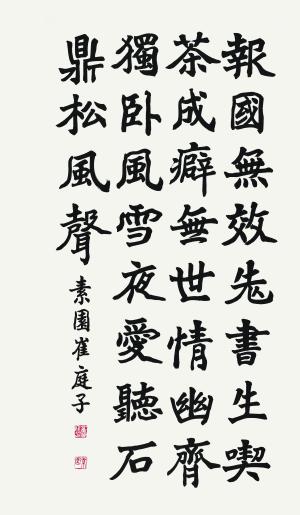 報國無效先書生喫
茶成癖無世情幽齊
獨臥風雪夜愛聽石
鼎松風聲
素園崔庭子